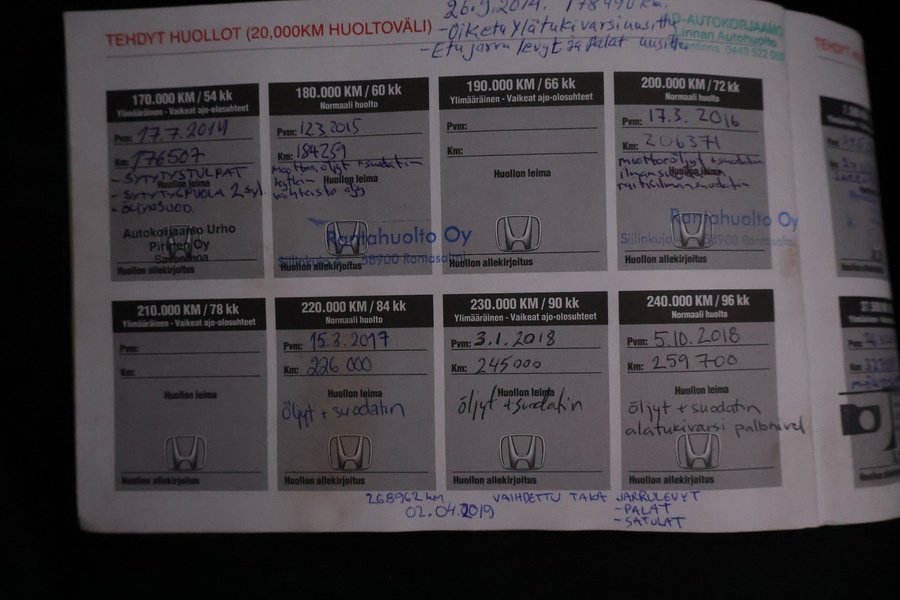 26.9.2014. 178490 km.
TEHDYT HUOLLOT (20,000KM HUOLTOVÄLI)
-Oikea Ylätukivarsi uusittu
-Etujarru levyt ja Palat uusittu
AD-AUTOKORJAAMO
Linnan Autohuolto
170.000 KM / 54 kk
Ylimääräinen - Vaikeat ajo-olosuhteet
Pvm: 17.7.2014
Km: 176507
- SYTYTYSTULPAT
Huollon leima
- SYTYTYSPUOLA 2 syl.
- ÖLJY+SUOD.
Autokorjaamo Urho
Pirinen Oy
Savonlinna
Huollon allekirjoitus
180.000 KM / 60 kk
Normaali huolto
Pvm: 12.3.2015
Km: 184259
moottoriöljyt + suodatin
Huollon leima
vaihteisto öljy
Rantahuolto Oy
Siilinkuja 58900 Rantasalmi
Huollon allekirjoitus
190.000 KM / 66 kk
Ylimääräinen - Vaikeat ajo-olosuhteet
Pvm:
Km:
Huollon leima
Huollon allekirjoitus
200.000 KM / 72 kk
Normaali huolto
Pvm: 17.3.2016
Km: 206371
moottoriöljyt + suodatin
Huollon leima
raitisilmansuodatin
Rantahuolto Oy
Siilinkuja 58900 Rantasalmi
Huollon allekirjoitus
210.000 KM / 78 kk
Ylimääräinen - Vaikeat ajo-olosuhteet
Pvm:
Km:
Huollon leima
Huollon allekirjoitus
220.000 KM / 84 kk
Normaali huolto
Pvm: 15.3.2017
Km: 226 000
Huollon leima
öljyt + suodatin
Huollon allekirjoitus
230.000 KM / 90 kk
Ylimääräinen - Vaikeat ajo-olosuhteet
Pvm: 3.1.2018
Km: 245000
Huollon leima
öljyt + suodatin
Huollon allekirjoitus
240.000 KM / 96 kk
Normaali huolto
Pvm: 5.10.2018
Km: 259 700
Huollon leima
öljyt + suodatin
alatukivarsi pallonivel
Huollon allekirjoitus
268962 km
02.04.2019
VAIHDETTU TAKA JARRULEVYT
-PALAT
-SATULAT